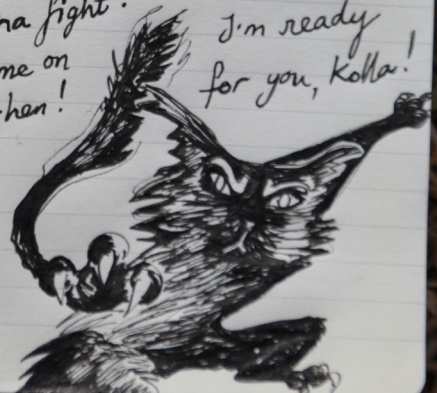 fight.
me on
then!
I'm ready
for you, Kolla!